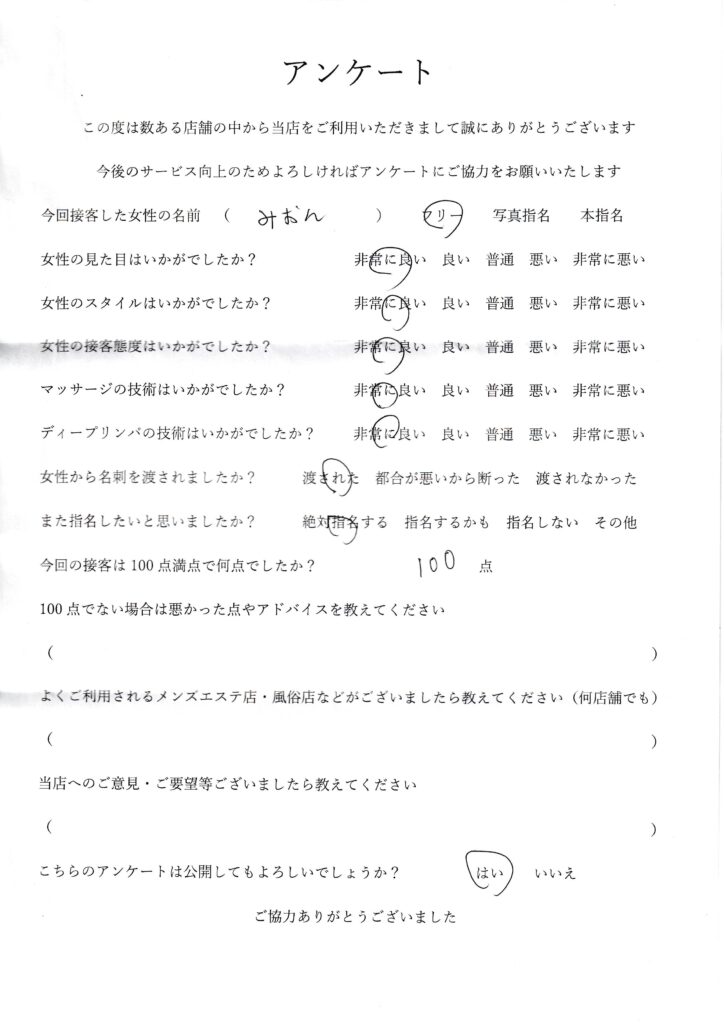 アンケート
この度は数ある店舗の中から当店をご利用いただきまして誠にありがとうございます
今後のサービス向上のためよろしければアンケートにご協力をお願いいたします
今回接客した女性の名前 ( みおん ) フリー 写真指名 本指名
女性の見た目はいかがでしたか? 非常に良い 良い 普通 悪い 非常に悪い
女性のスタイルはいかがでしたか? 非常に良い 良い 普通 悪い 非常に悪い
女性の接客態度はいかがでしたか? 非常に良い 良い 普通 悪い 非常に悪い
マッサージの技術はいかがでしたか? 非常に良い 良い 普通 悪い 非常に悪い
ディープリンパの技術はいかがでしたか? 非常に良い 良い 普通 悪い 非常に悪い
女性から名刺を渡されましたか? 渡された 都合が悪いから断った 渡されなかった
また指名したいと思いましたか? 絶対指名する 指名するかも 指名しない その他
今回の接客は100点満点で何点でしたか? 100 点
100点でない場合は悪かった点やアドバイスを教えてください
( )
よくご利用されるメンズエステ店・風俗店などがございましたら教えてください(何店舗でも)
( )
当店へのご意見・ご要望等ございましたら教えてください
( )
こちらのアンケートは公開してもよろしいでしょうか? はい いいえ
ご協力ありがとうございました